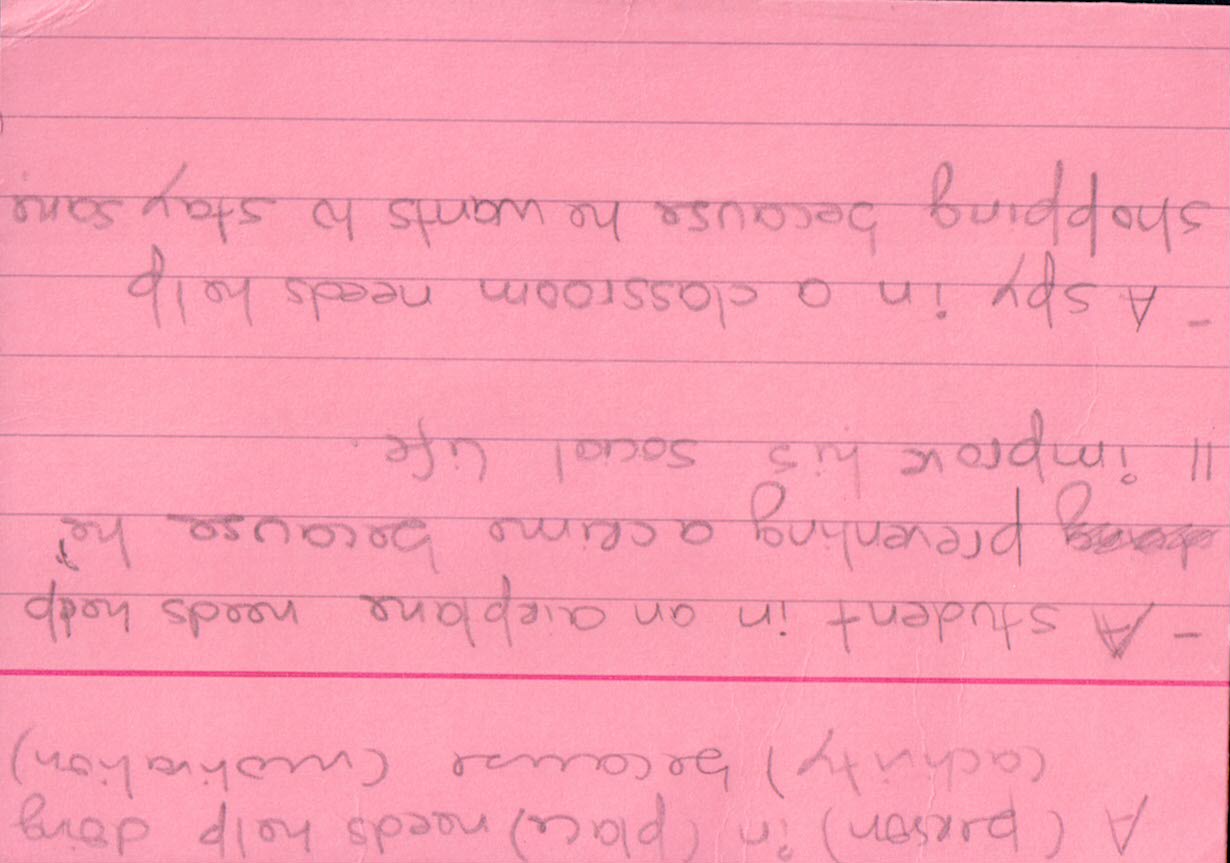 A (person) in (place) needs help doing
(activity) because (motivation)
- A student in an airplane needs help
preventing a crime because he
" improve his social life.
- A spy in a classroom needs help
shopping because he wants to stay sane